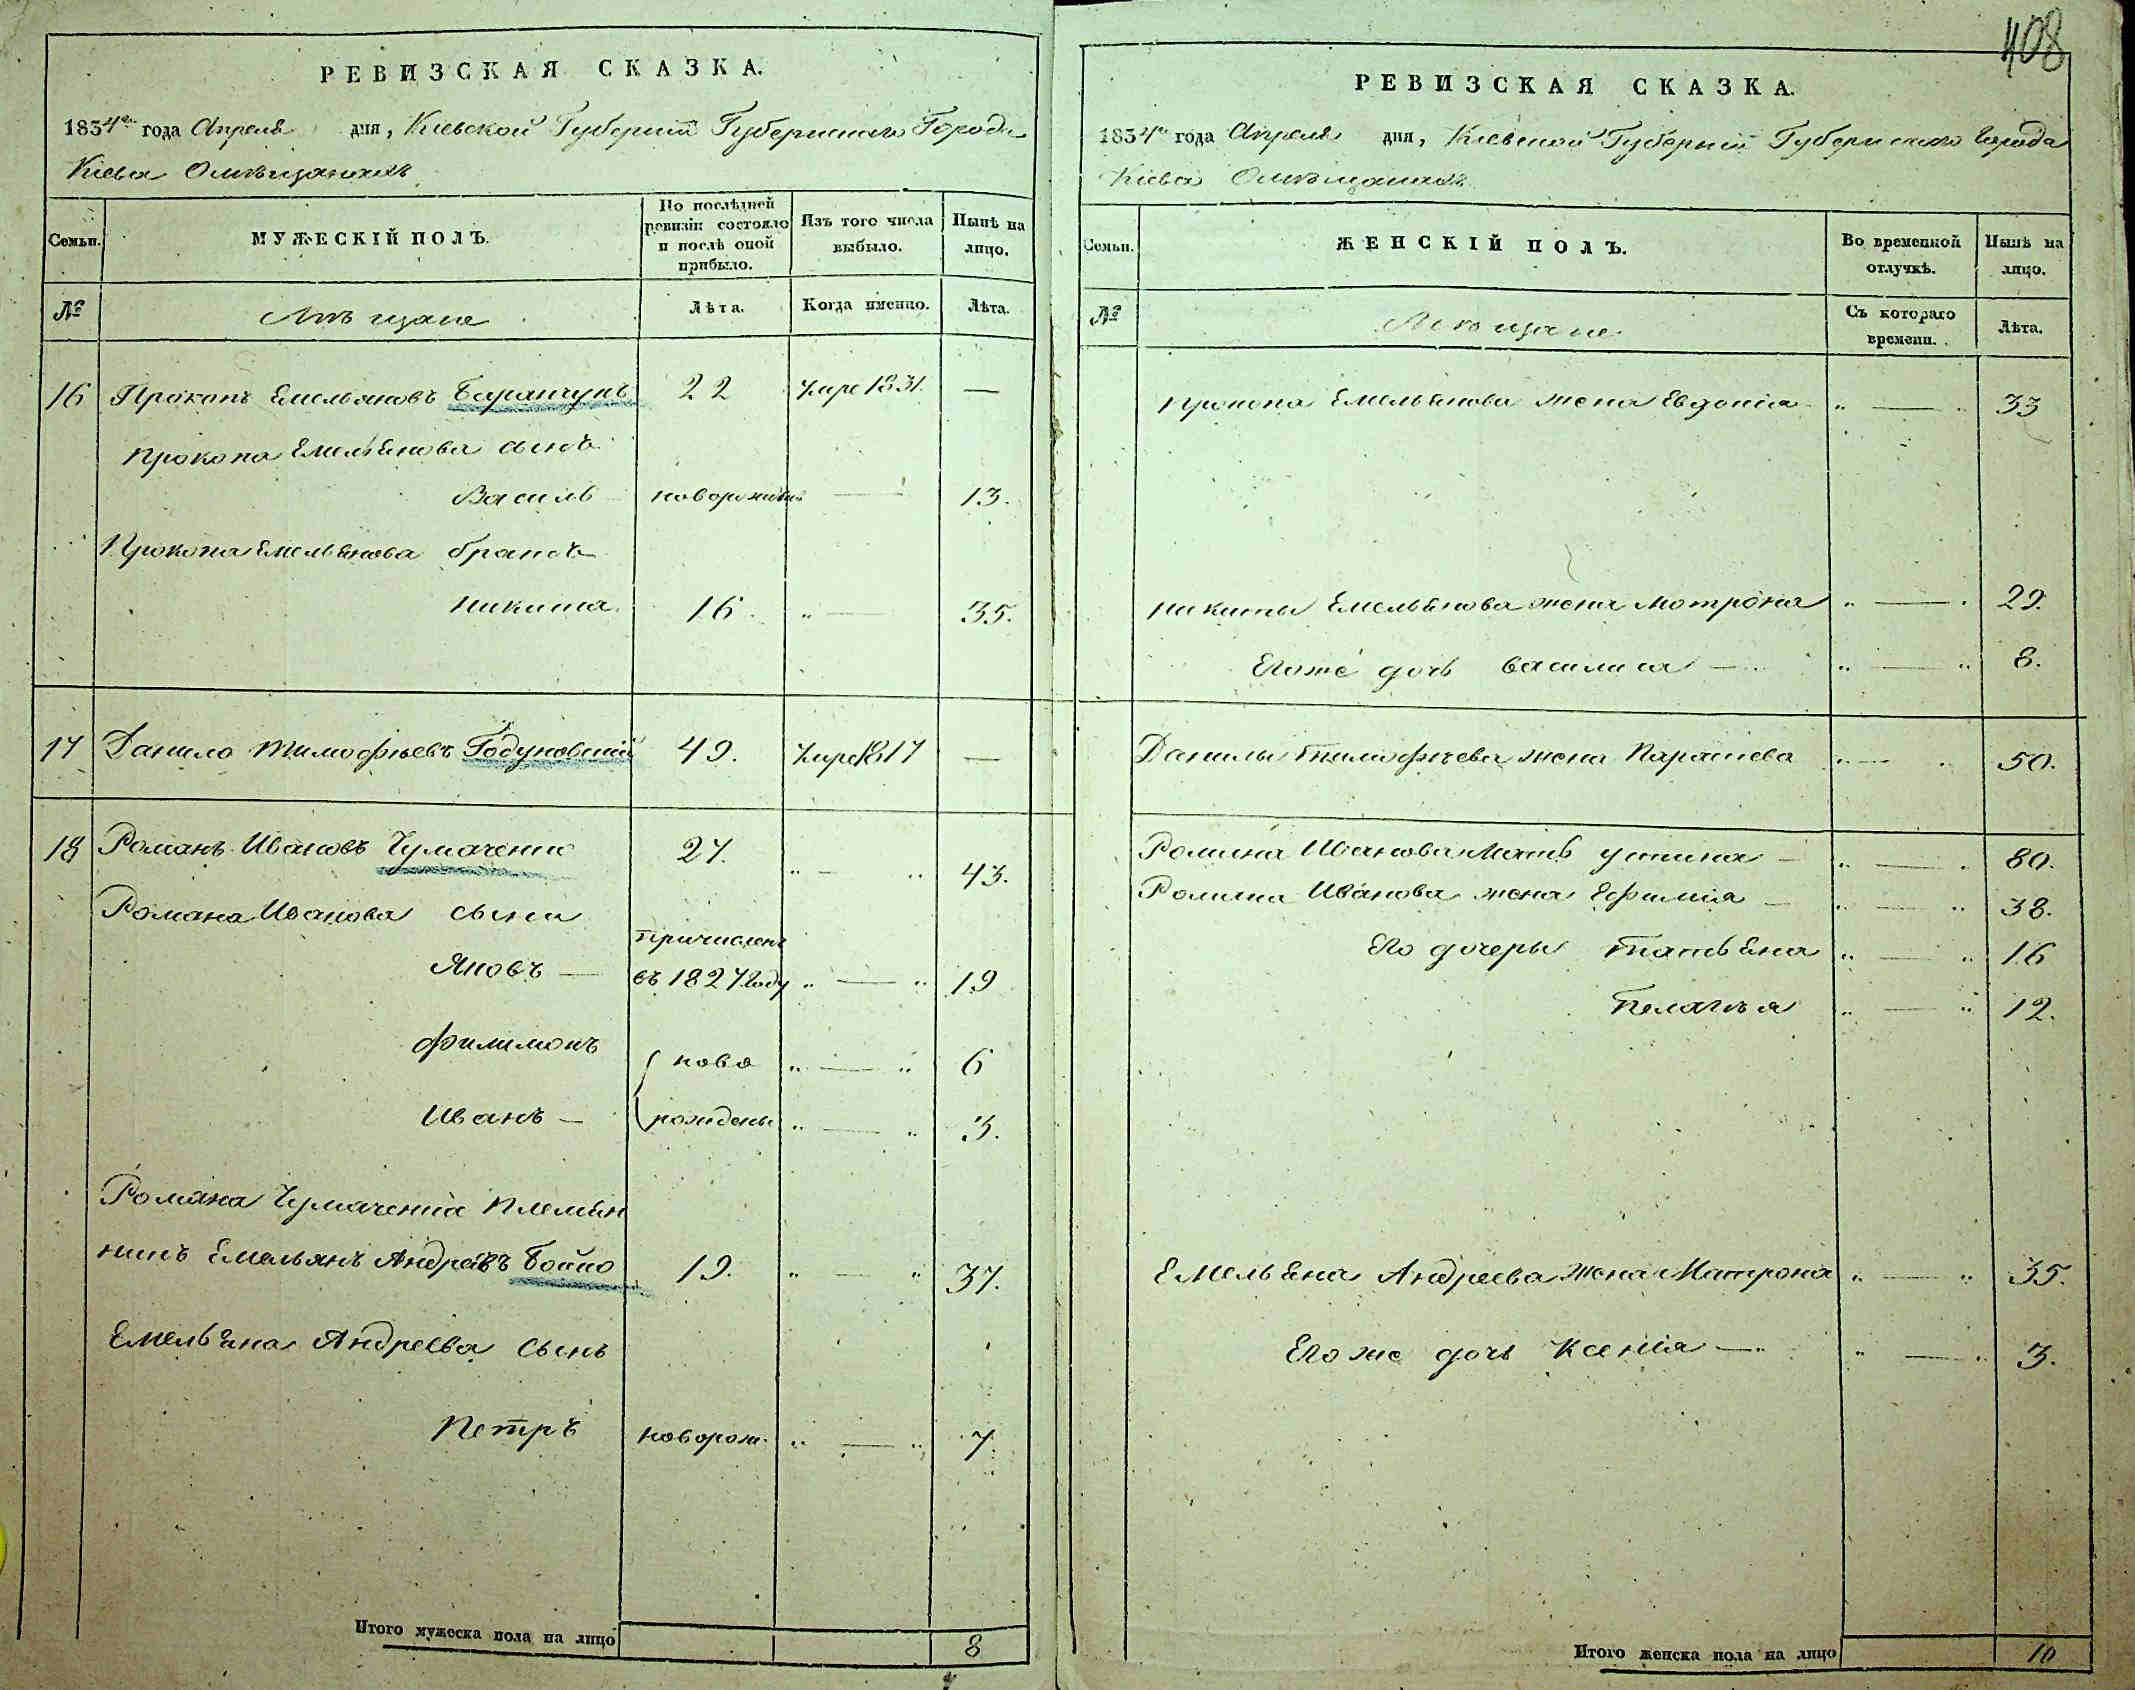 408
РЕВИЗСКАЯ СКАЗКА.
1834го года Апреля дня, Кіевской Губерніи Губернскаго Города
Кіева Омѣщанахъ
Семьи.
МУЖЕСКІЙ ПОЛЪ.
По послѣдней ревизіи состояло и послѣ оной прибыло.
Изъ того числа выбыло.
Нынѣ на лицо.
№
Мѣщане
Лѣта.
Когда именно.
Лѣта.
16 Прокопъ Емельяновъ Баранчукъ 22 Умре 1831. —
Прокопа Емельянова сынъ
Василь новорожден — 13.
Прокопа Емельянова братъ
Никита. 16. " — 35.
17 Данило Тимофѣевъ Годуновскій 49. Умре 1817 —
18 Романъ Ивановъ Чумаченко 27. " — " 43.
Романа Иванова сыни
Яковъ — причислен въ 1827 Году " — " 19
Филимонъ ново " — " 6
Иванъ — рождены " — " 3.
Романа Чумаченка племян
никъ Емельянъ Андреевъ Бойко 19. " — " 37.
Емельяна Андреева Сынъ
Петръ новорож. " — " 7.
Итого мужеска пола на лицо 8
РЕВИЗСКАЯ СКАЗКА.
1834го года Апреля дня, Кіевской Губерніи Губернскаго Города
Кіева Омѣщанахъ
Семьи.
ЖЕНСКІЙ ПОЛЪ.
Во временной отлучкѣ.
Нынѣ на лицо.
№
Мѣщане
Съ котораго времени.
Лѣта.
Прокопа Емельянова жена Евдокія " — " 33
Никиты Емельянова жена Мотрона " — " 29.
Егоже дочь Василиса — " — " 8.
Данилы Тимофѣева жена Параскева " — " 50.
Романа Иванова Мать Устина — " — " 80.
Романа Иванова жена Ефимія — " — " 38.
Его дочеры Татьяна " — " 16
Пелагея " — " 12.
Емельяна Андреева жена Матрона " — " 35.
Егоже дочь Ксенія — " — " 3.
Итого женска пола на лицо 10